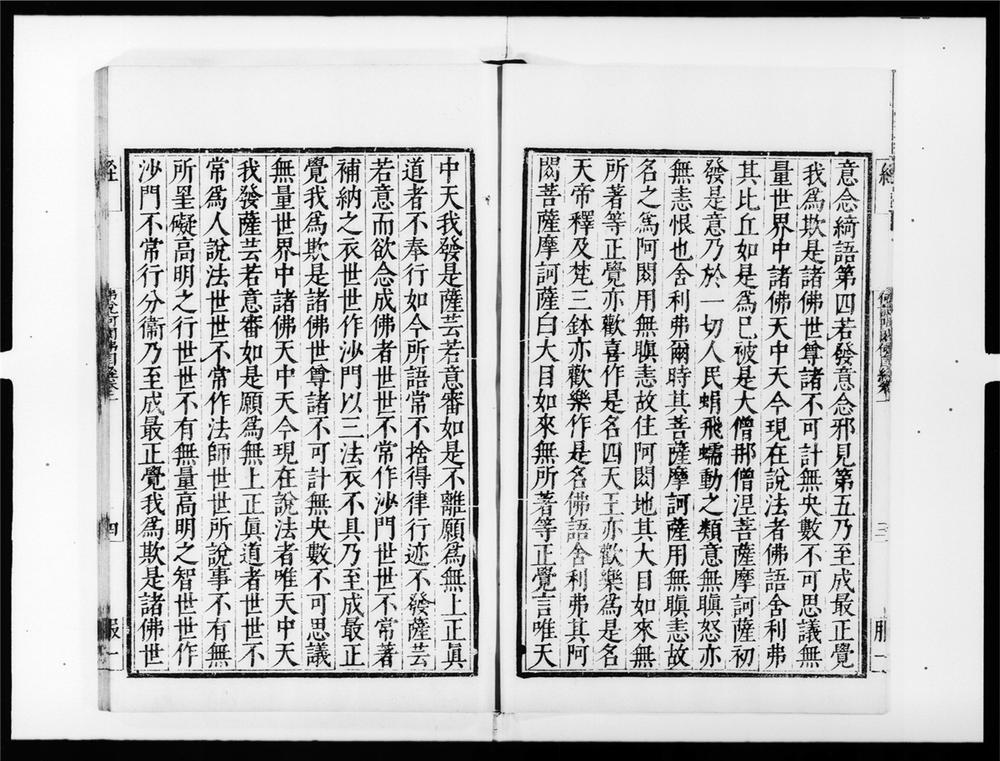 意念綺語第四若發意念邪見第五乃至成最正覺
我爲欺是諸佛世尊諸不可計無央數不可思議無
量世界中諸佛天中天今現在說法者佛語舍利弗
其比丘如是爲已被是大僧那僧涅菩薩摩訶薩初
發是意乃於一切人民蜎飛蠕動之類意無瞋怒亦
無恚恨也舍利弗爾時其菩薩摩訶薩用無瞋恚故
名之爲阿閦用無瞋恚故住阿閦地其大目如來無
所著等正覺亦歡喜作是名四天王亦歡樂爲是名
天帝釋及梵三鉢亦歡樂作是名佛語舍利弗其阿
閦菩薩摩訶薩白大目如來無所著等正覺言唯天
三
中天我發是薩芸若意審如是不離願爲無上正眞
道者不奉行如今所語常不捨得律行迹不發薩芸
若意而欲念成佛者世世不常作沙門世世不常著
補納之衣世世作沙門以三法衣不具乃至成最正
覺我爲欺是諸佛世尊諸不可計無央數不可思議
無量世界中諸佛天中天今現在說法者唯天中天
我發薩芸若意審如是願爲無上正眞道者世世不
常爲人說法世世不常作法師世世所說事不有無
所罣礙高明之行世世不有無量高明之智世世作
沙門不常行分衞乃至成最正覺我爲欺是諸佛世
四